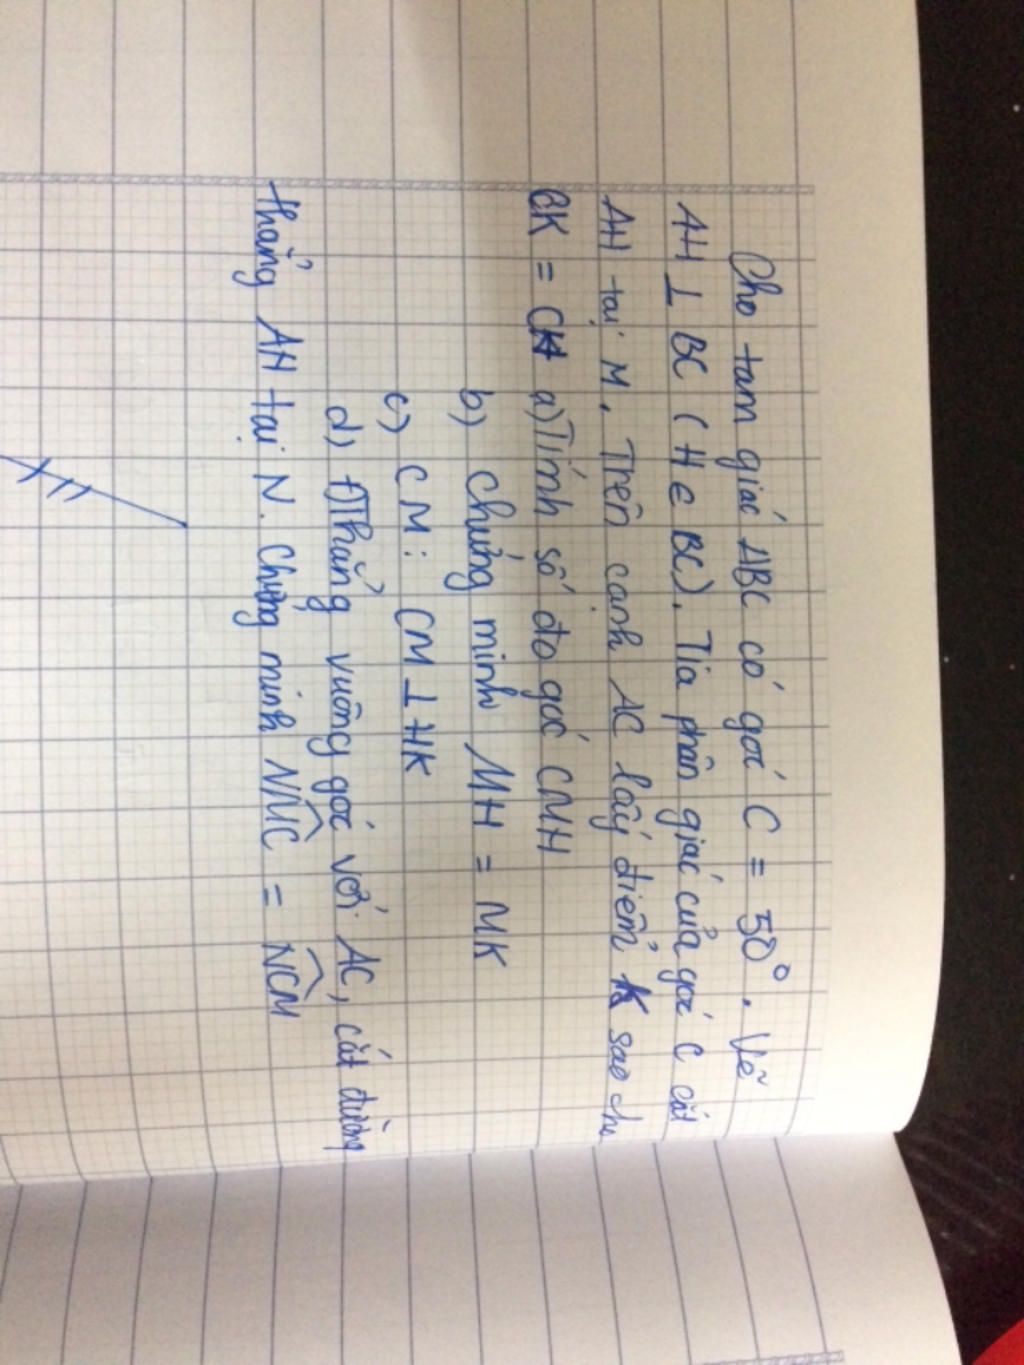 Cho tam giác ABC có góc C = 50°. Vẽ
AH ⊥ BC (H ∈ BC). Tia phân giác của góc C cắt
AH tại M. Trên cạnh AC lấy điểm K sao cho
CK = CH a) Tính số đo góc CMH
b) Chứng minh MH = MK
c) CM: CM ⊥ HK
d) ĐThẳng vuông góc với AC, cắt đường
thẳng AH tại N. Chứng minh \widehat{NMC} = \widehat{NCM}